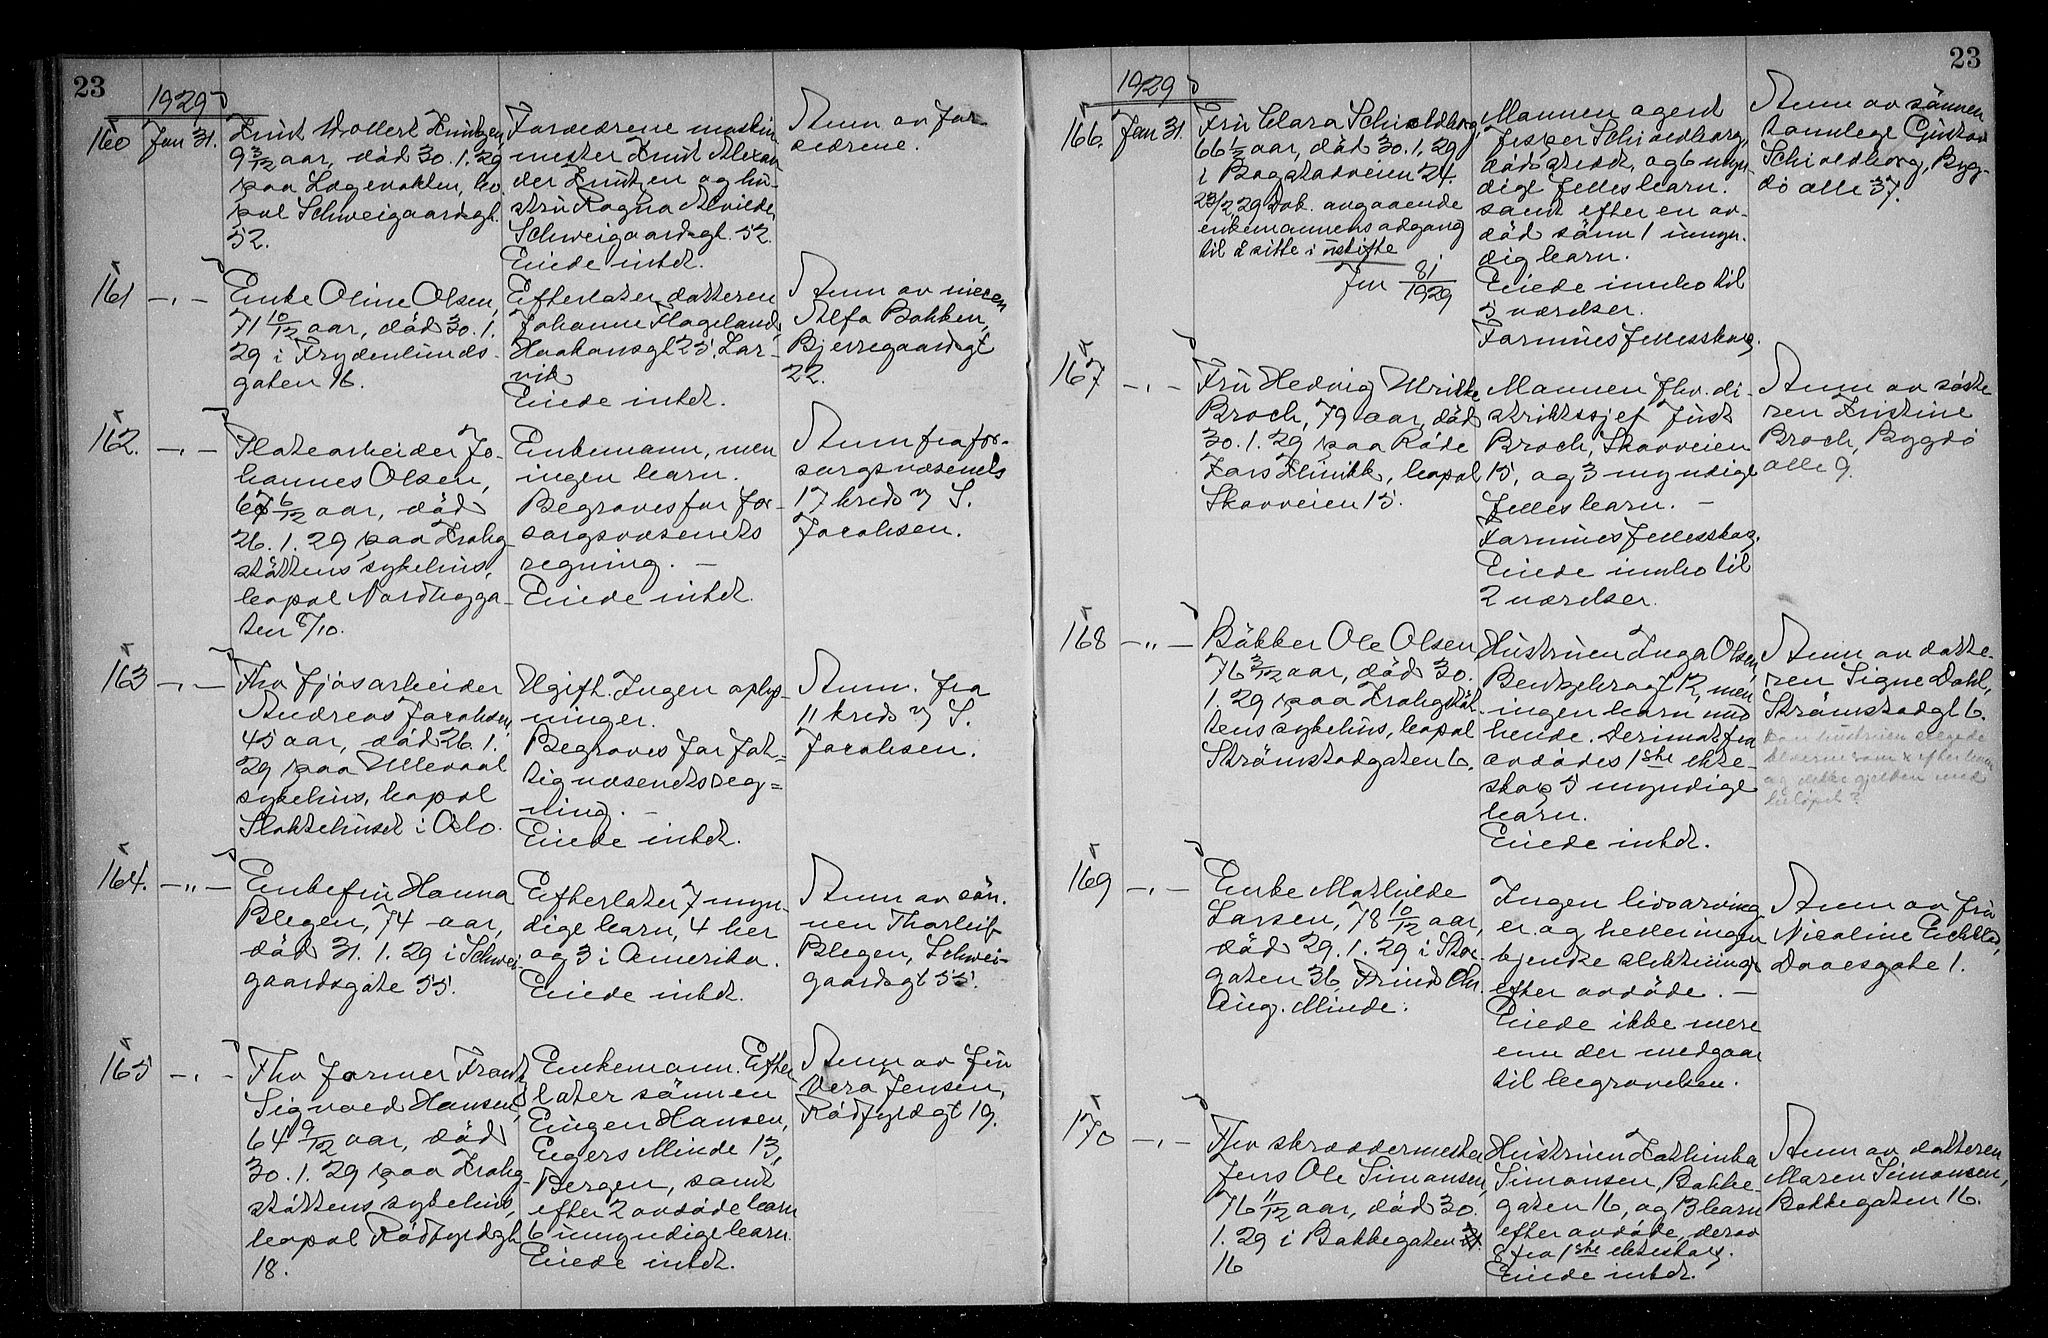 23
1929
160 Jan 31.
Knut Wollert Knutzen,
9 3/12 aar, död 30.1.29
paa Lægevakten, bo
pæl Schweigaardsgt.
52.
Foreldrene maskin
mester Knut Alexan
der Knutzen og hu-
stru Ragna Alvilde,
Schweigaardsgt. 52.
Eiede intet.
Anm av for-
eldrene.
161 -"-
Enke Oline Olsen,
71 10/12 aar, död 30.1.
29 i Frydenlunds-
gaten 16.
Efterlater datteren
Johanne Hageland,
Haakonsgt 25, Lar-
vik
Eiede intet.
Anm av niesen
Alfa Bakken,
Bjerregaardsgt
22.
162. -"-
Platearbeider Jo-
hannes Olsen,
67 6/12 aar, död
26.1.29 paa Krohg-
stöttens sykehus,
bopæl Nordbygga-
ten 8/10.
Enkemann, men
ingen barn.
Begraves for for-
sorgsvæsenets
regning. —
Eiede intet.
Anm fra for-
sorgsvæsenets
17 kreds v/ S.
Jacobsen.
163 -"-
Fhv fjösarbeider
Andreas Jacobsen,
45 aar, död 26.1.
29 paa Ullevaal
sykehus, bopæl
Slaktehuset i Oslo.
Ugift. Ingen oplys-
ninger.
Begraves for fat-
tigvæsenets reg-
ning. —
Eiede intet.
Anm. fra
11 kreds v/ S.
Jacobsen.
164. -"-
Enkefru Hanna
Blegen, 74 aar,
död 31.1.29 i Schwei-
gaardsgate 55.
Efterlater 7 myn-
dige barn, 4 her
og 3 i Amerika.
Eiede intet.
Anm av sön-
nen Thorleif
Blegen, Schwei-
gaardsgt 55.
165 -"-
Fhv former Frantz
Sigvald Hansen,
64 9/12 aar, död
30.1.29 paa Krohg-
stöttens sykehus,
bopæl Rödfyldgt
18.
Enkemann. Efter
later sönnen
Eugen Hansen,
Eegers Minde 13,
Bergen, samt
efter 2 avdöde barn
6 umyndige barn.
Eiede intet.
Anm av fru
Vera Jensen,
Rödfyldgt 19.
23
1929
166. Jan 31.
Fru Clara Schioldborg,
66 1/2 aar, död 30.1.29
i Bogstadveien 24.
23/2 29 Dok. angaaende
enkemannens adgang
til å sitte i uskifte
Jnr 81/1929
Mannen agent
Jesper Schioldborg,
död sted, og 6 myn-
dige felles barn.
samt efter en av-
död sönn 1 umyn-
dig barn.
Eiede innbo til
5 værelser.
Formuesfellesskap.
Anm av sönnen
tannlege Gustav
Schioldborg, Byg-
dö alle 37.
167 -"-
Fru Hedvig Ulrikke
Broch, 79 aar, död
30.1.29 paa Röde
Kors Klinikk, bopæl
Skovveien 15.
Mannen fhv. di-
striktssjef Just
Broch, Skovveien
15, og 3 myndige
felles barn. —
Formuesfellesskap.
Eiede innbo til
2 værelser.
Anm av söste
ren Kristine
Broch, Bygdö
alle 9.
168 -"-
Båkker Ole Olsen
76 3/12 aar, död 30.
1.29 paa Krohgstöt-
tens sykehus, bopæl
Strömstadgaten 6.
Hustruen Inga Olsen,
12, men
ingen barn med
hende. Derimot fra
avdödes 1ste ekte-
skap 5 myndige
barn.
Eiede intet.
Anm av datte-
ren Signe Dahl,
Strömstadgt 6.
169 -"-
Enke Mathilde
Larsen, 78 10/12 aar,
död 29.1.29 i Stor-
gaten 36, Trind Chr.
Aug. Minde.
Ingen livsarving
er og heller ingen
kjendte slektninge
efter avdöde. —
Eiede ikke mere
enn der medgaar
til begravelsen.
Anm av fru
Nicoline Eckblad,
Daaesgate 1.
170 -"-
Fhv skreddermester
Jens Ole Simonsen,
76 11/12 aar, död 30.
1.29 i Bakkegaten
16
Hustruen Kathinka
Simonsen, Bakke-
gaten 16, og 13 barn
efter avdöde, derav
8 fra 1ste ekteskap.
Eiede intet.
Anm av datteren
Maren Simonsen,
Bakkegaten 16.